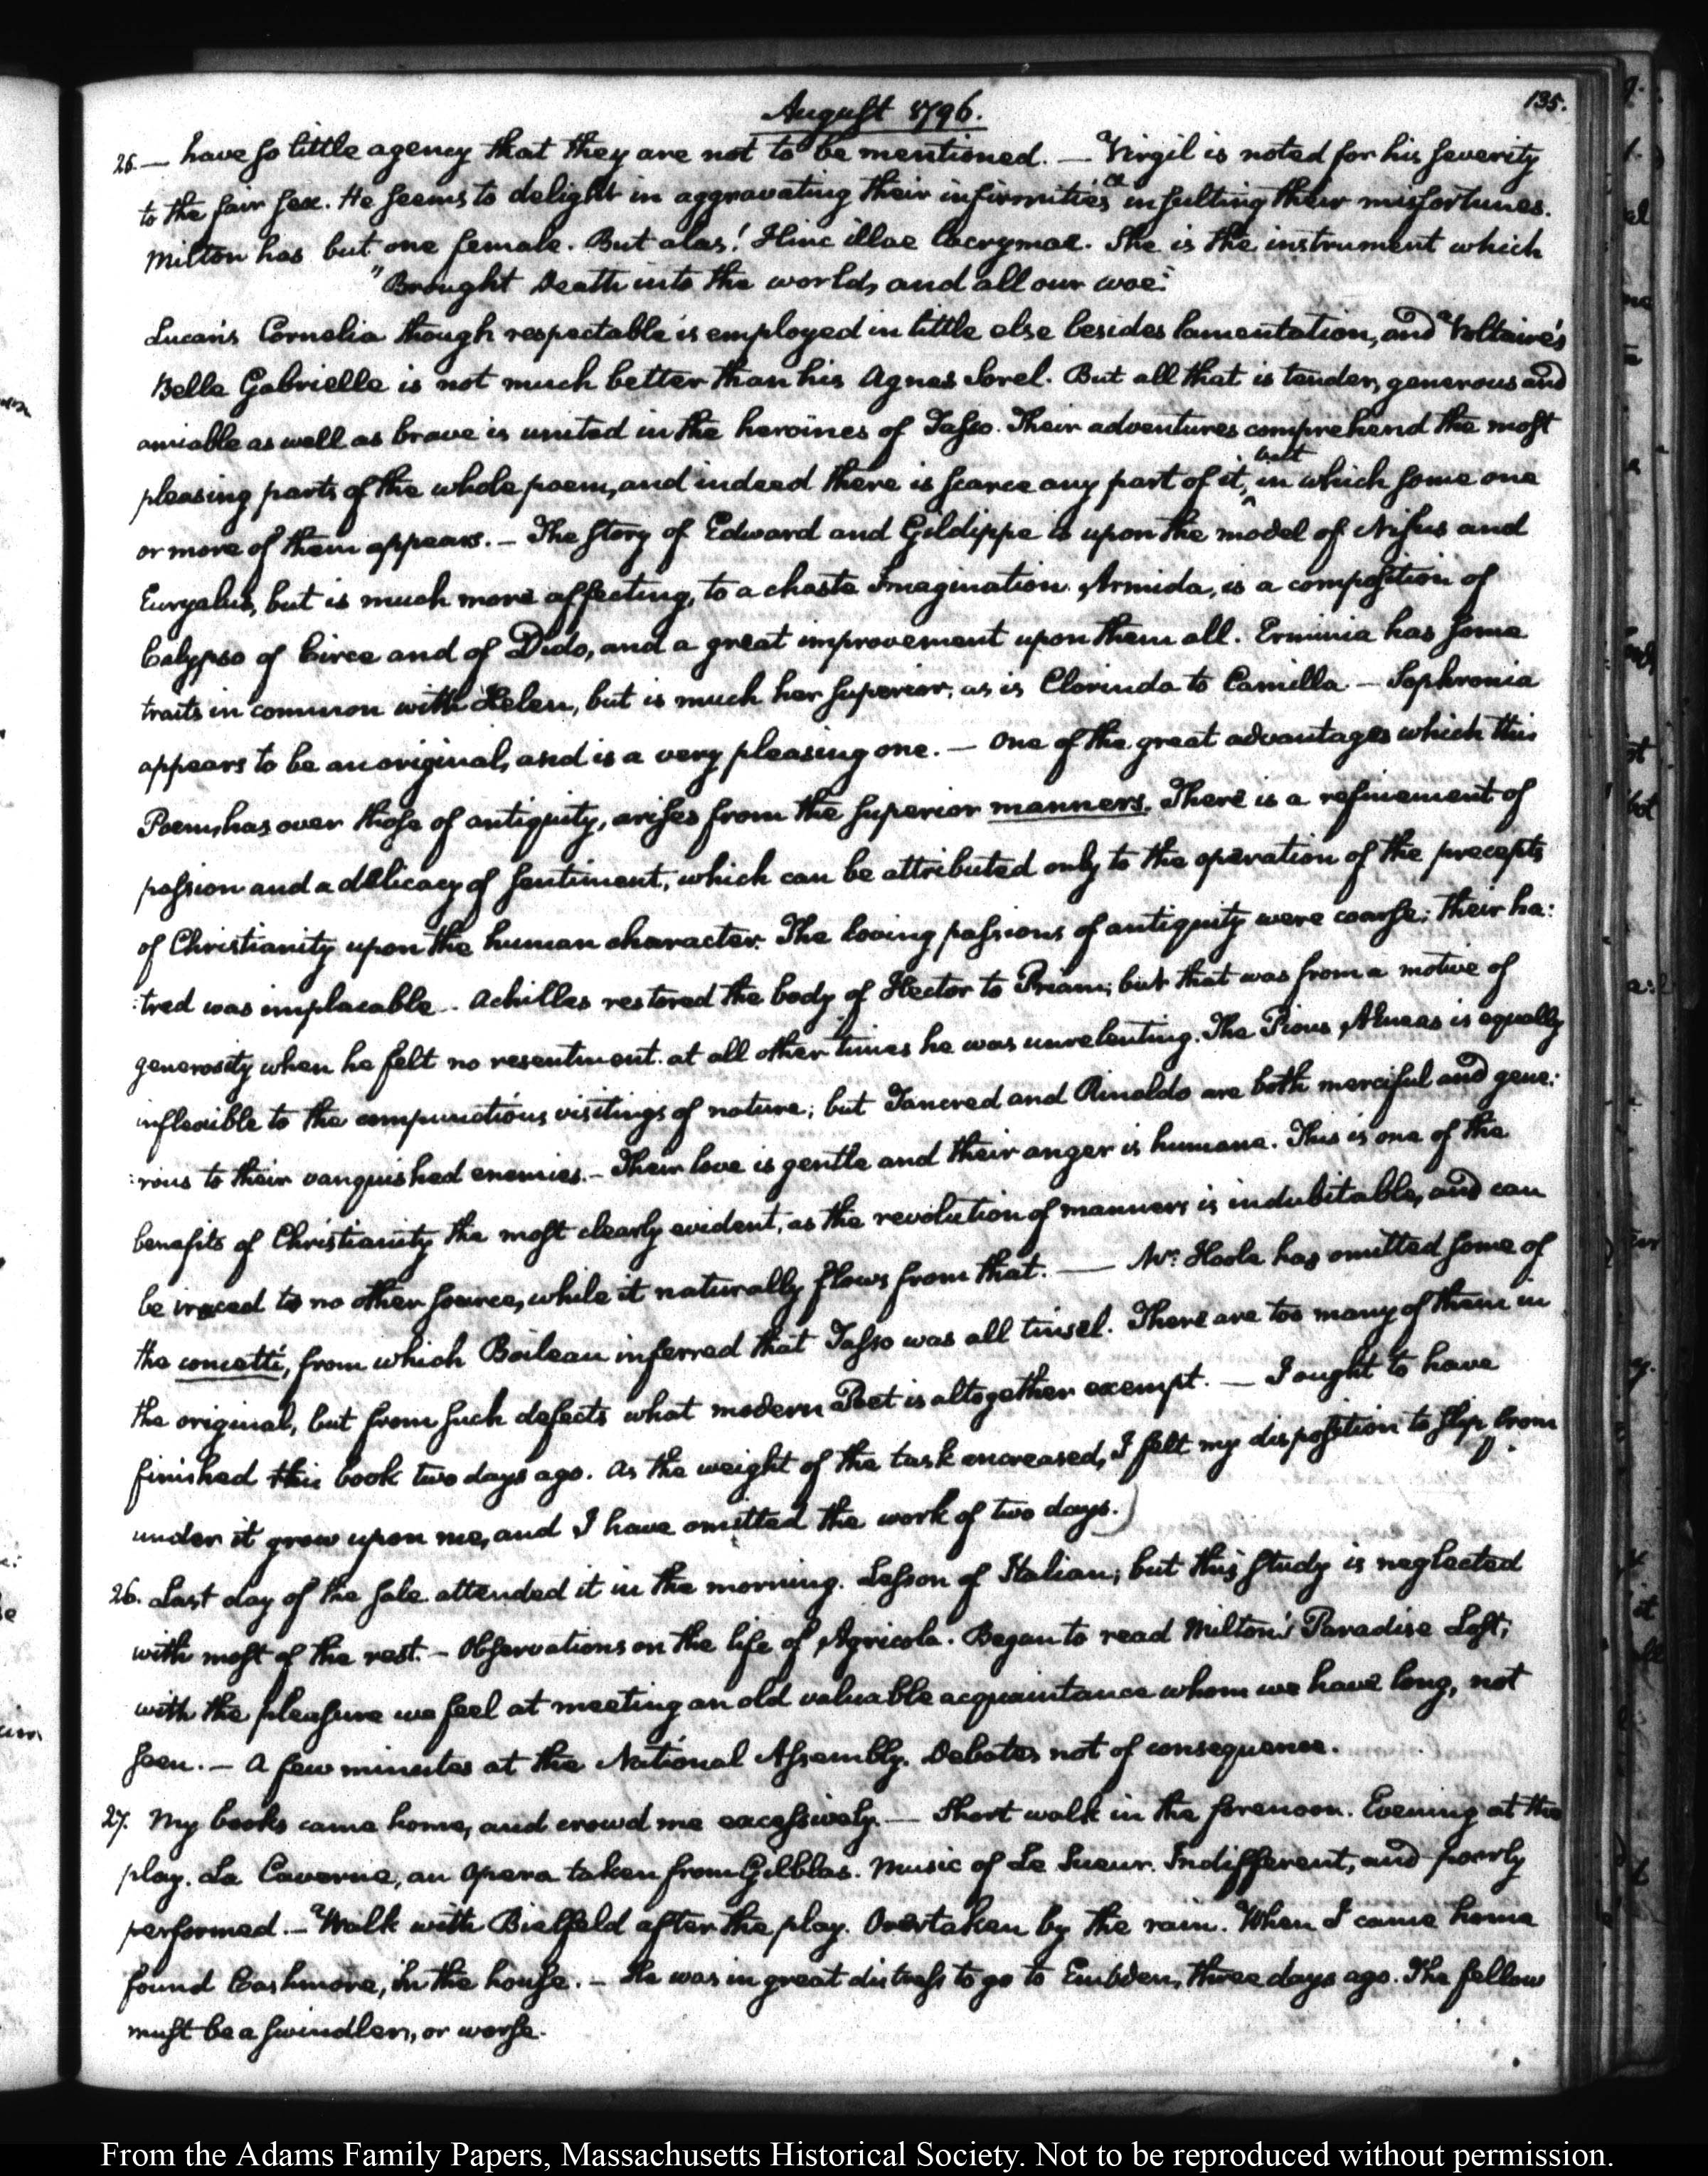 August 1796.
135.
25. — have so little agency that they are not to be mentioned. — Virgil is noted for his severity
to the fair sex. He seems to delight in aggravating their infirmities & insulting their misfortunes.
Milton has but one female. But alas! Hinc illae lacrymae. She is the instrument which
"Brought Death into the world, and all our woe."
Lucan's Cornelia though respectable is employed in little else besides lamentation, and Voltaire's
Belle Gabrielle is not much better than his Agnes Sorel. But all that is tender, generous and
amiable as well as brave is united in the heroines of Tasso. Their adventures comprehend the most
pleasing parts of the whole poem, and indeed there is scarce any part of it, but in which some one
or more of them appears. — The story of Edward and Gildippe is upon the model of Nisus and
Euryalus, but is much more affecting, to a chaste Imagination. Armida, is a composition of
Calypso of Circe and of Dido, and a great improvement upon them all. Erminia has some
traits in common with Helen, but is much her superior; as is Clorinda to Camilla — Sophronia
appears to be an original, and is a very pleasing one. — One of the great advantages which this
Poem, has over those of antiquity, arises from the superior manners. There is a refinement of
passion and a delicacy of sentiment, which can be attributed only to the operation of the precepts
of Christianity upon the human character. The loving passions of antiquity were coarse; their ha:
:tred was implacable. Achilles restored the body of Hector to Priam; but that was from a motive of
generosity when he felt no resentment. at all other times he was unrelenting. The Pious Aeneas is equally
inflexible to the compunctious visitings of nature; but Tancred and Rinaldo are both merciful and gene:
:rous to their vanquished enemies. — Their love is gentle and their anger is humane. This is one of the
benefits of Christianity the most clearly evident, as the revolution of manners is indubitable, and can
be traced to no other source, while it naturally flows from that. — Mr: Hoole has omitted some of
the concetti, from which Boileau inferred that Tasso was all tinsel. There are too many of them in
the original, but from such defects what modern Poet is altogether exempt. — I ought to have
finished this book two days ago. As the weight of the task encreased, I felt my disposition to slip from
under it grow upon me, and I have omitted the work of two days.)
26. Last day of the sale attended it in the morning. Lesson of Italian; but this study is neglected
with most of the rest. — Observations on the life of Agricola. Began to read Milton's Paradise Lost;
with the pleasure we feel at meeting an old valuable acquaintance whom we have long, not
seen. — A few minutes at the National Assembly. Debates not of consequence.
27. My books came home, and crowd me excessively. — Short walk in the forenoon. Evening at the
play. La Caverne, an Opera taken from Gilblas. Music of Le Sueur. Indifferent, and poorly
performed. — Walk with Bielfeld after the play. Overtaken by the rain. When I came home
found Cashmore, in the house. — He was in great distress to go to Embden, three days ago. The fellow
must be a swindler, or worse.
From the Adams Family Papers, Massachusetts Historical Society. Not to be reproduced without permission.